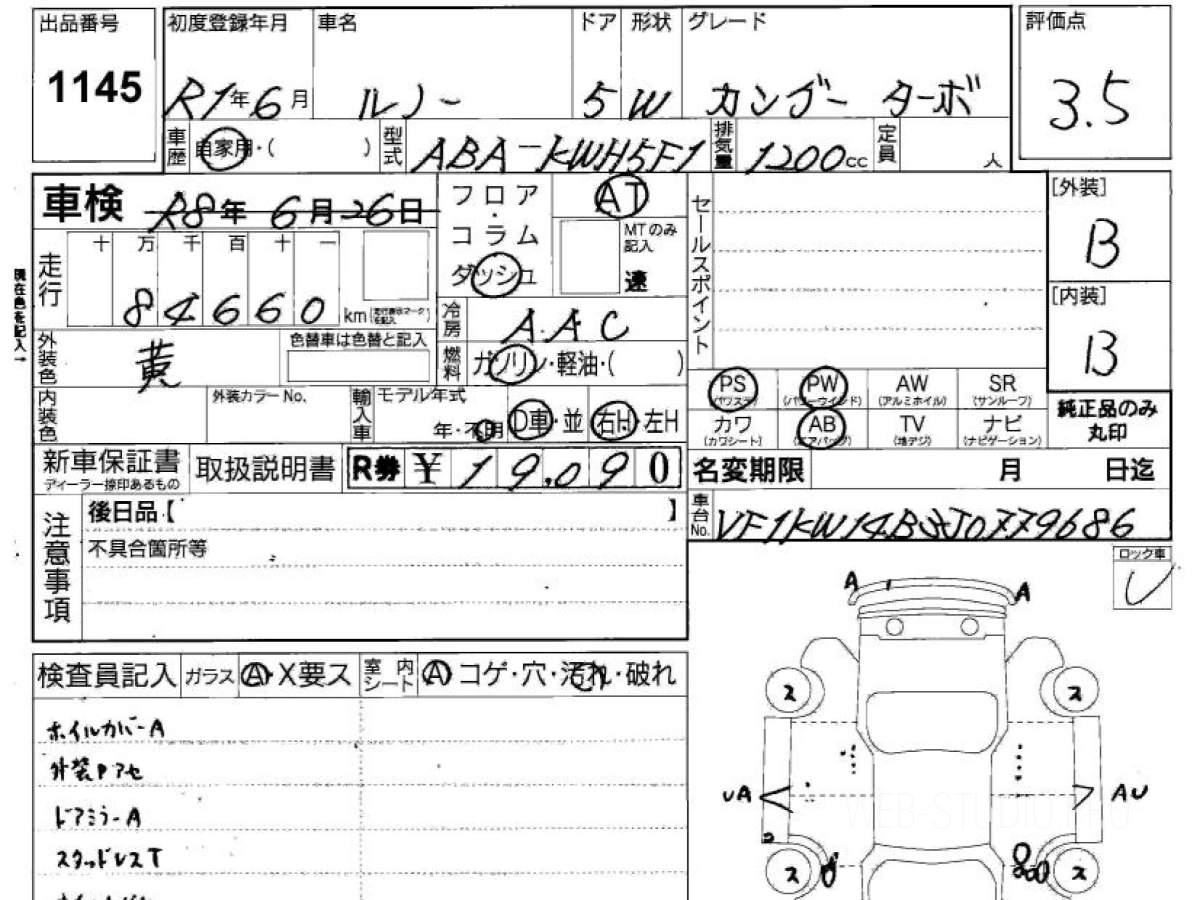 出品番号 初度登録年月 車名 ドア 形状 グレード 評価点
1145 R1年6月 ルノー 5 W カングー ターボ 3.5
車歴 自家用・( ) 型式 ABA-KWH5F1 排気量 1200cc 定員 人
車検 R8年6月26日 フロア・コラム ダッシュ AT セールスポイント [外装]
B
MTのみ記入 速
現在色を記入→
走行 十 万 千 百 十 一
84660 km
[内装]
B
冷房 AAC
外装色 黄 色替車は色替と記入 燃料 ガソリン・軽油・( )
PS (パワステ) PW (パワーウインド) AW (アルミホイル) SR (サンルーフ)
純正品のみ丸印
内装色 外装カラーNo. 輸入車 モデル年式 年・不明 D車・並 右H・左H
カワ (カワシート) AB (エアバッグ) TV (地デジ) ナビ (ナビゲーション)
新車保証書 取扱説明書 R券 ¥19,090 名変期限 月 日迄
ディーラー捺印あるもの
注意事項 後日品【 】 車台No.
不具合箇所等
ロック車
A A
検査員記入 ガラス A・X要ス 室内シート A コゲ・穴・汚れ・破れ
ス ス
ホイルカバーA
外装Pアセ
UA AU
ドアミラーA
WEB-STUDIO.PRO
スタッドレスT
ス ス